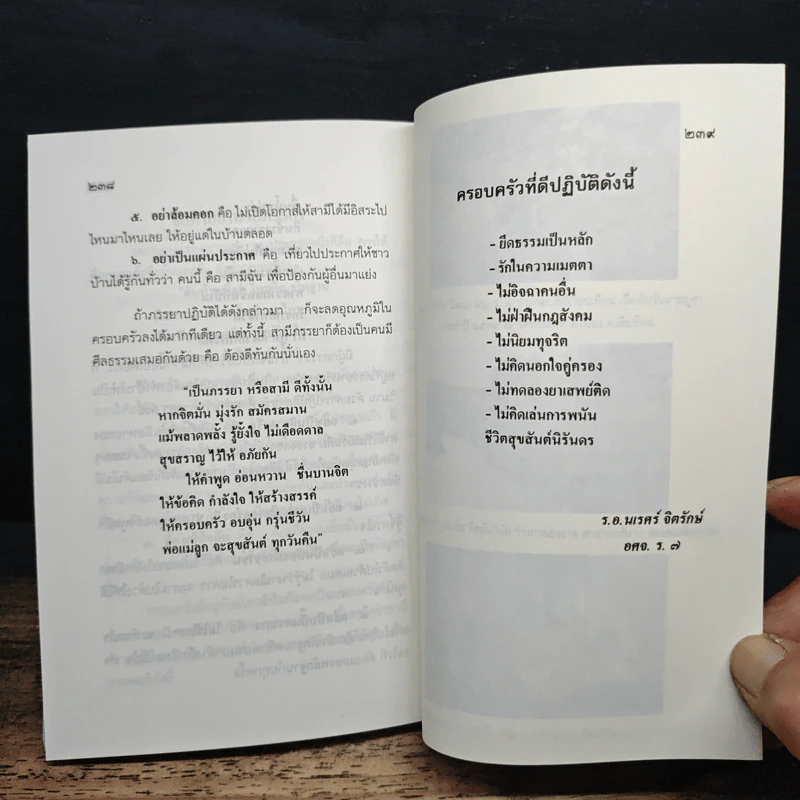 ๒๓๘
๕. อย่าล้อมคอก คือ ไม่เปิดโอกาสให้สามีได้มีอิสระไป
ไหนมาไหนเลย ให้อยู่แต่ในบ้านตลอด
๖. อย่าเป็นแผ่นประกาศ คือ เที่ยวไปประกาศให้ชาว
บ้านได้รู้กันทั่วว่า คนนี้ คือ สามีฉัน เพื่อป้องกันผู้อื่นมาแย่ง
ถ้าภรรยาปฏิบัติได้ดังกล่าวมา ก็จะลดอุณหภูมิใน
ครอบครัวลงได้มากทีเดียว แต่ทั้งนี้ สามีภรรยาก็ต้องเป็นคนมี
ศีลธรรมเสมอกันด้วย คือ ต้องดีทันกันนั่นเอง
"เป็นภรรยา หรือสามี ดีทั้งนั้น
หากจิตมั่น มุ่งรัก สมัครสมาน
แม้พลาดพลั้ง รู้ยั้งใจ ไม่เดือดดาล
สุขสราญ ไว้ให้ อภัยกัน
ให้คำพูด อ่อนหวาน ชื่นบานจิต
ให้ข้อคิด กำลังใจ ให้สร้างสรรค์
ให้ครอบครัว อบอุ่น กรุ่นชีวัน
พ่อแม่ลูก จะสุขสันต์ ทุกวันคืน"
๒๓๙
ครอบครัวที่ดีปฏิบัติดังนี้
- ยึดธรรมเป็นหลัก
- รักในความเมตตา
- ไม่อิจฉาคนอื่น
- ไม่ฝ่าฝืนกฎสังคม
- ไม่นิยมทุจริต
- ไม่คิดนอกใจคู่ครอง
- ไม่ทดลองยาเสพย์ติด
- ไม่คิดเล่นการพนัน
ชีวิตสุขสันต์นิรันดร
ร.อ.นเรศร์ จิตรักษ์
อศจ. ร. ๗